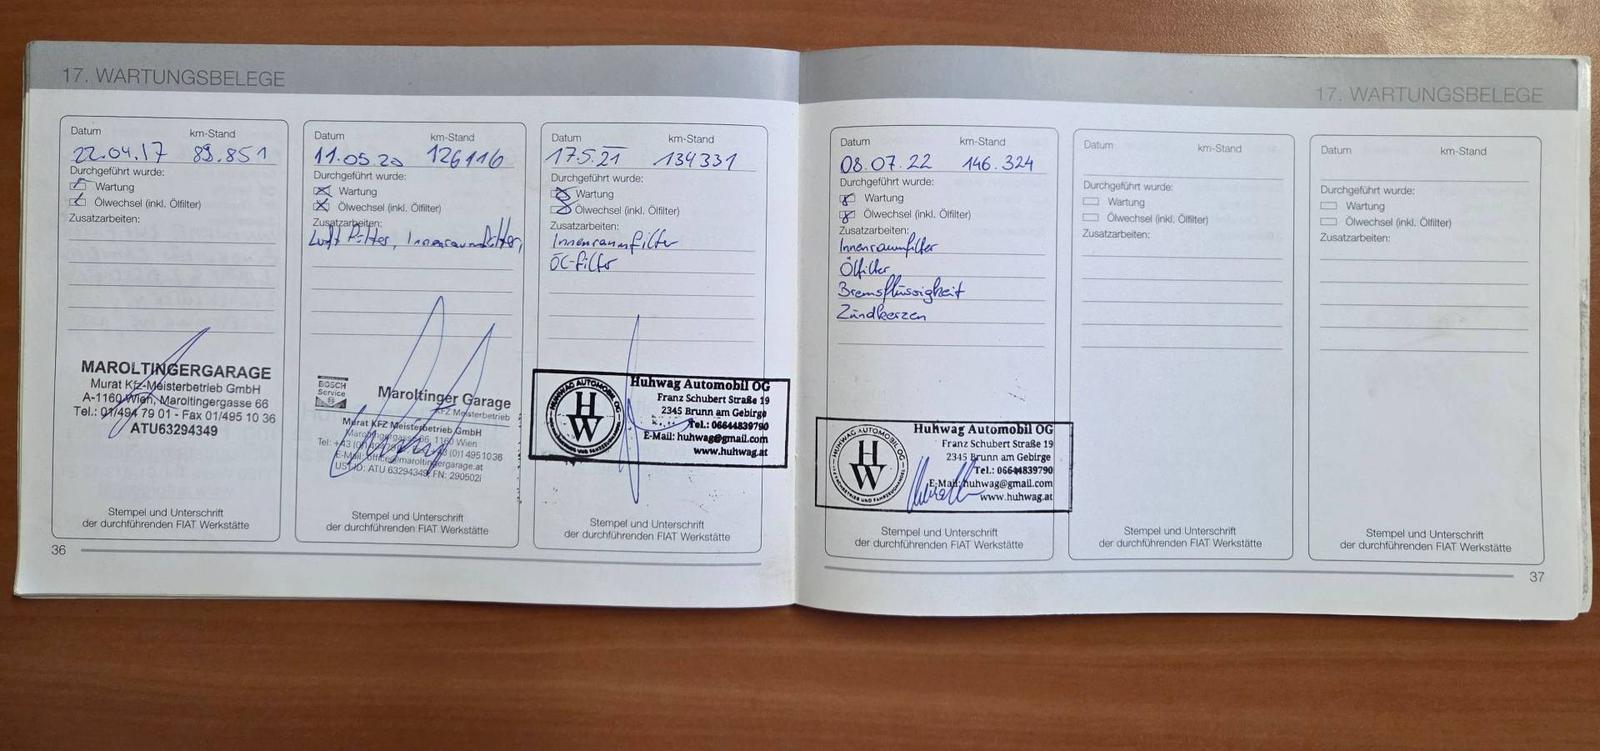 17. WARTUNGSBELEGE
Datum km-Stand
22.04.17 89.851
Durchgeführt wurde:
Wartung
Ölwechsel (inkl. Ölfilter)
Zusatzarbeiten:
MAROLTINGERGARAGE
Murat Kfz-Meisterbetrieb GmbH
A-1160 Wien, Maroltingergasse 66
Tel.: 01/494 79 01 - Fax 01/495 10 36
ATU63294349
Stempel und Unterschrift
der durchführenden FIAT Werkstätte
Datum km-Stand
11.05.20 126116
Durchgeführt wurde:
Wartung
Ölwechsel (inkl. Ölfilter)
Zusatzarbeiten:
Luft Filter, Innenraumfilter,
BOSCH
Service
Maroltinger Garage
KFZ Meisterbetrieb
Murat KFZ Meisterbetrieb GmbH
Maroltingergasse 66, 1160 Wien
E-Mail: office@maroltingergarage.at
ATU 63294349, FN: 290502i
Stempel und Unterschrift
der durchführenden FIAT Werkstätte
Datum km-Stand
17.5.21 134331
Durchgeführt wurde:
Wartung
Ölwechsel (inkl. Ölfilter)
Zusatzarbeiten:
Innenraumfilter
ÖL-filter
HUHWAG AUTOMOBIL OG
HW
Huhwag Automobil OG
Franz Schubert Straße 19
2345 Brunn am Gebirge
Tel.: 06644839790
E-Mail: huhwag@gmail.com
www.huhwag.at
Stempel und Unterschrift
der durchführenden FIAT Werkstätte
36
17. WARTUNGSBELEGE
Datum km-Stand
08.07.22 146.324
Durchgeführt wurde:
Wartung
Ölwechsel (inkl. Ölfilter)
Zusatzarbeiten:
Innenraumfilter
Ölfilter
Bremsflüssigkeit
Zündkerzen
HUHWAG AUTOMOBIL OG
HW
Huhwag Automobil OG
Franz Schubert Straße 19
2345 Brunn am Gebirge
Tel.: 06644839790
E-Mail: huhwag@gmail.com
www.huhwag.at
Stempel und Unterschrift
der durchführenden FIAT Werkstätte
Datum km-Stand
Durchgeführt wurde:
Wartung
Ölwechsel (inkl. Ölfilter)
Zusatzarbeiten:
Stempel und Unterschrift
der durchführenden FIAT Werkstätte
Datum km-Stand
Durchgeführt wurde:
Wartung
Ölwechsel (inkl. Ölfilter)
Zusatzarbeiten:
Stempel und Unterschrift
der durchführenden FIAT Werkstätte
37